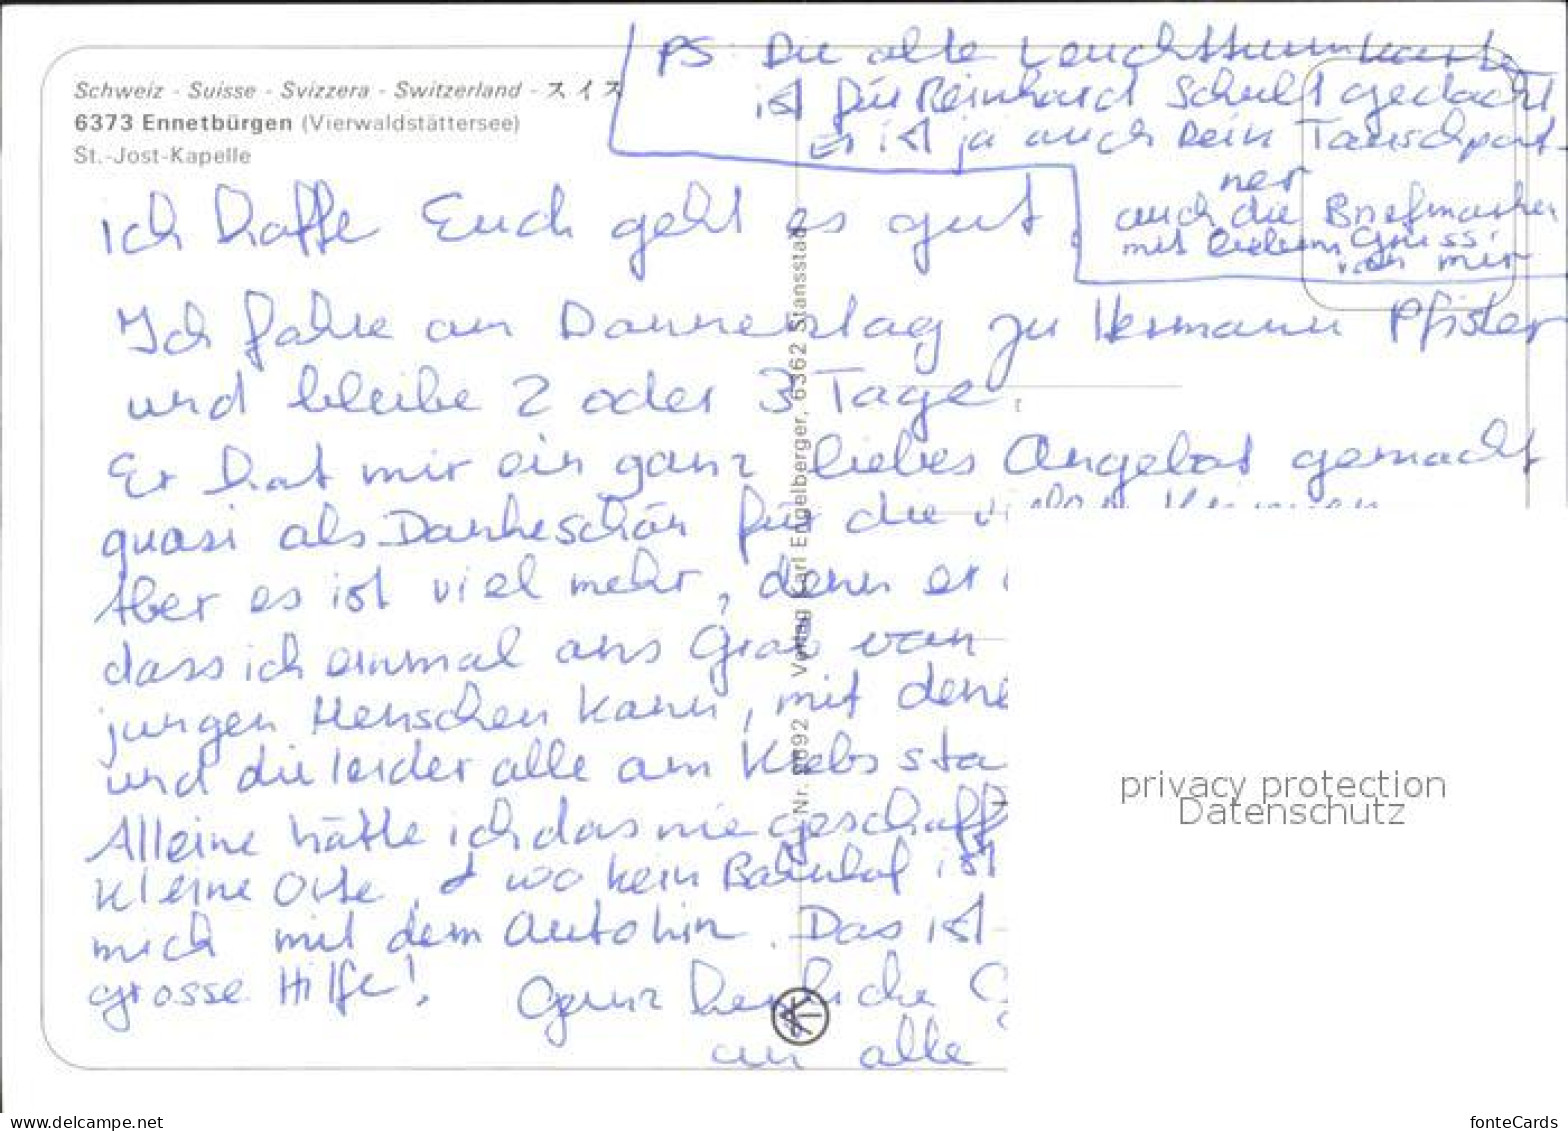 Schweiz - Suisse - Svizzera - Switzerland - スイス
6373 Ennetbürgen (Vierwaldstättersee)
St.-Jost-Kapelle
PS: Die alte Leuchtturmkarte
ist für Reinhard Schult gedacht
Es ist ja auch Dein Tauschpart-
ner
auch die Briefmarken
mit liebem Gruss
von mir
ich hoffe Euch geht es gut.
Ich fahre am Donnerstag zu Hermann Pfister
und bleibe 2 oder 3 Tage.
Er hat mir ein ganz liebes Angebot gemacht
quasi als Dankeschön für die vielen
Aber es ist viel mehr, denn er
dass ich einmal ans Grab von
jungen Menschen kann, mit dene
und die leider alle am Krebs sta
Alleine hätte ich das nie geschaff
kleine Orte, & wo kein Bahnhof ist
mich mit dem Auto hin. Das ist
grosse Hilfe!
Ganz herzliche G
an alle
Verlag Karl Engelberger, 6362 Stansstad
privacy protection
Datenschutz
www.delcampe.net
fonteCards